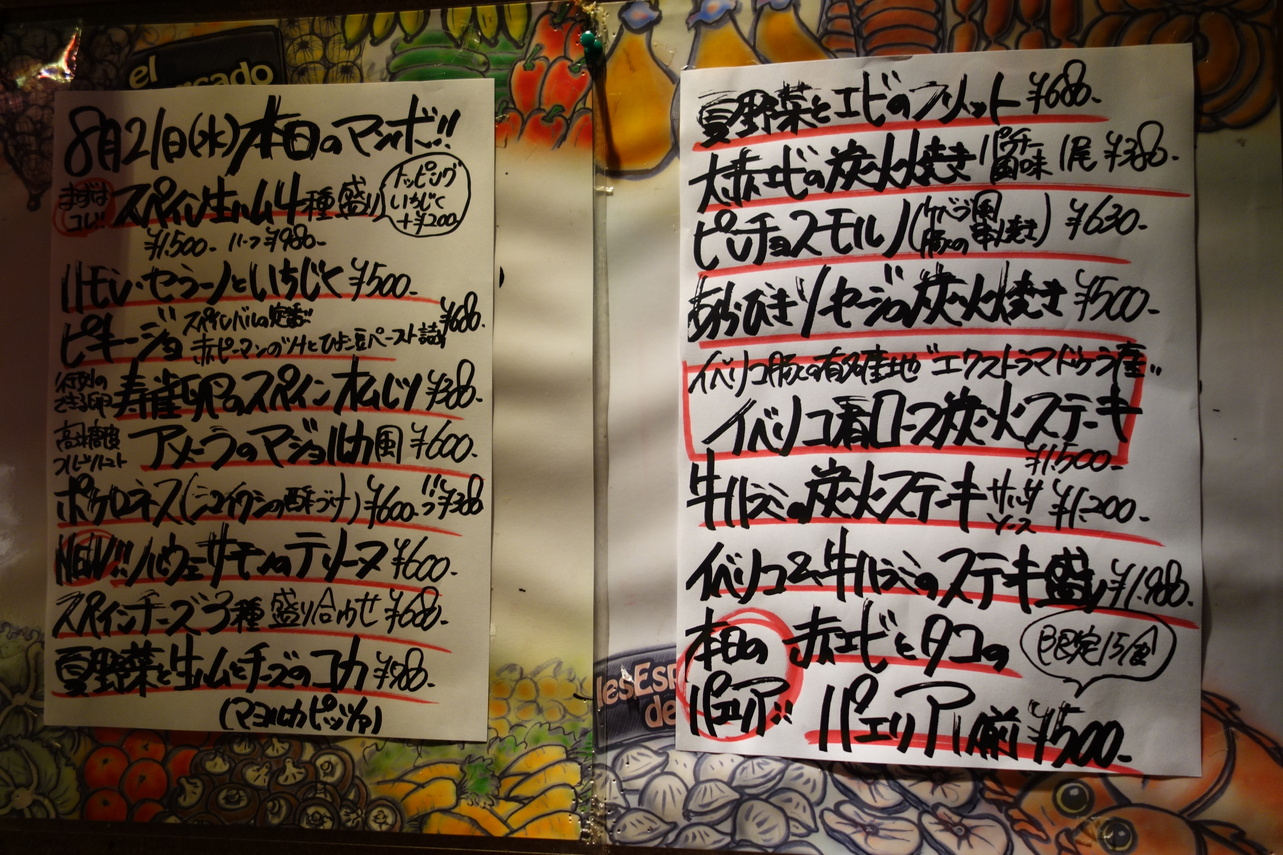 el
mercado
8月21日(水)本日のマンボ!!
まずはコレ! スペイン生ハム4種盛り
トッピング
いちじく
+¥200
¥1500- ハーフ ¥980-
ハモン・セラーノといちじく ¥500-
ピキージョ スペインバルの定番!!
赤ピーマンのツナとひよこ豆ペースト詰 ¥608-
行列の
できる卵 寿雀卵のスペインオムレツ ¥380-
アメーラのマジョルカ風 ¥600-
ボケロネス(シコイワシの酢づけ) ¥600- ハーフ ¥380
NEW!! ノルウェーサーモンのテリーヌ ¥600-
スペインチーズ3種盛り合わせ ¥680-
夏野菜と生ハムとチーズのコカ ¥980-
(マヨルカピッツァ)
夏野菜とエビのフリット ¥680-
大赤エビの炭火焼き アンチョビー風味 1尾 ¥380-
ピンチョスモルノ(アラブ風
豚の串焼き) ¥630-
あらびきソーセージの炭火焼き ¥500-
イベリコ豚の有名産地"エクストラマドゥラ産"
イベリコ肩ロース炭火ステーキ
¥1500-
牛ハラミの炭火ステーキ サルサ
ソース ¥1200-
イベリコと牛ハラミのステーキ盛り ¥1980-
本日の
パエリア!!
赤エビとタコの
限定15食
パエリア 1人前 ¥500-
les
Esp
de